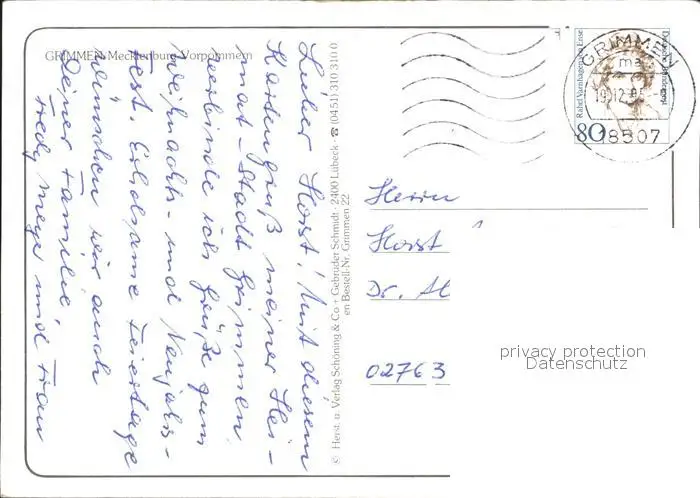 GRIMMEN Mecklenburg-Vorpommern
Lieber Horst! Mit diesem
Kartengruß meiner Hei-
mat-Stadt Grimmen
verbinde ich Grüße zum
Weihnachts- und Neujahrs-
Fest. Erholsame Feiertage
wünschen wir auch
Deiner Familie,
und Frau
© Herst. u. Verlag Schöning & Co + Gebrüder Schmidt · 2400 Lübeck · ☎ (0451) 310 310 0
en Bestell-Nr. Grimmen 22
GRIMMEN
ma
19.12.95
18507
Rahel Varnhagen von Ense
Deutsche Bundespost
80
Herrn
Horst
Dr. Al
02763
privacy protection
Datenschutz